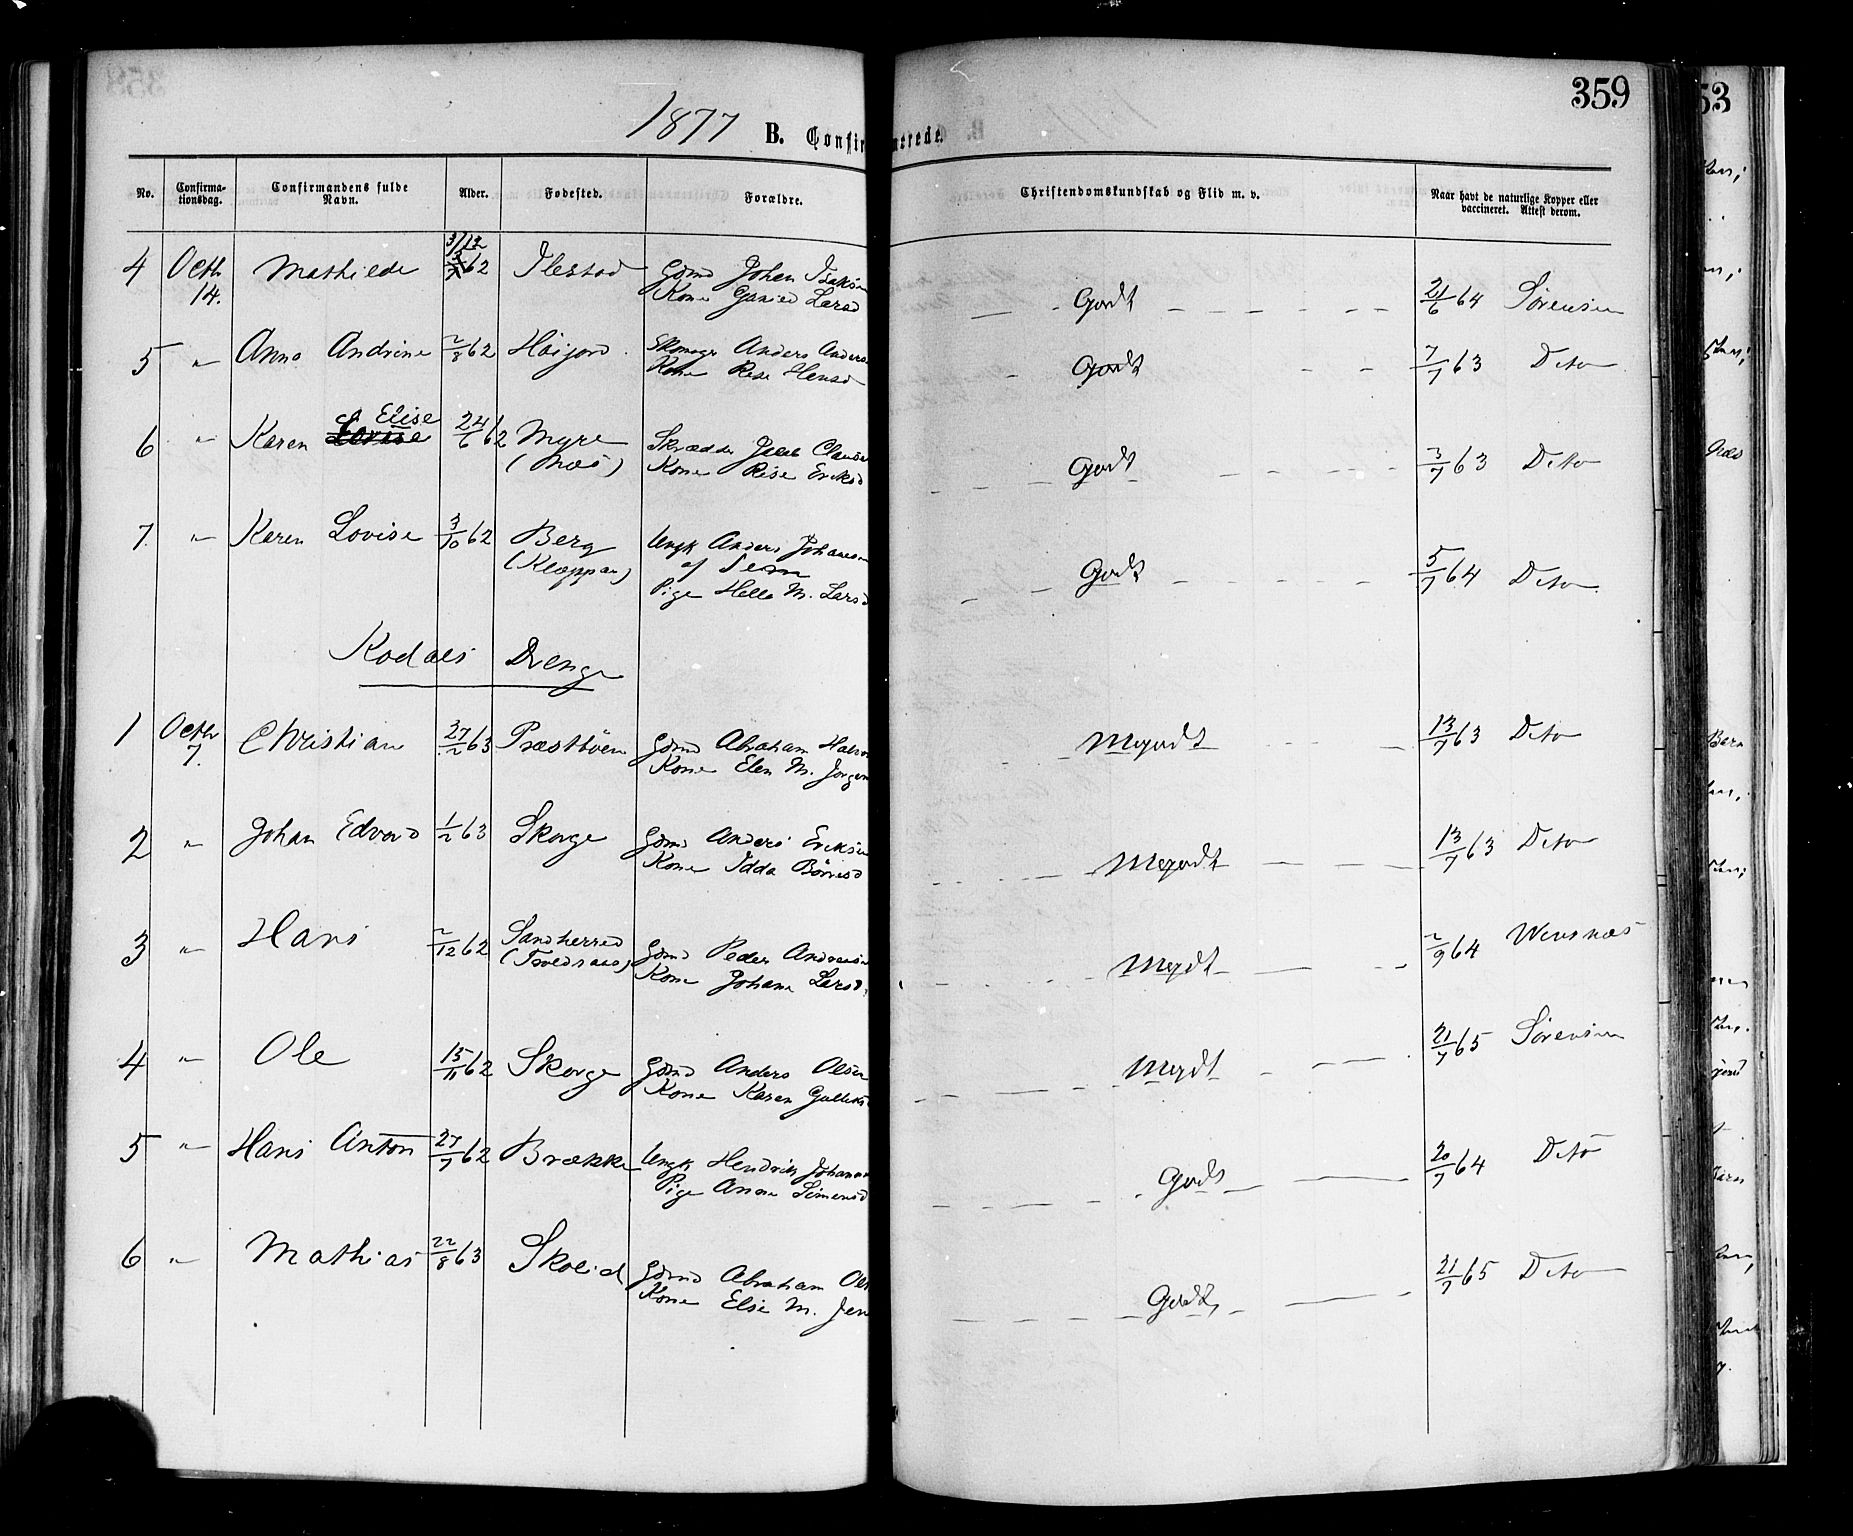 359
1877 B. Confirmerede.
No. Confirmationsdag. Confirmandens fulde Navn. Alder. Fødested. Forældre. Christendomskundskab og Flid m. v. Naar havt de naturlige Kopper eller vaccineret. Attest derom.
4 Octb 14. Mathilde 62 Ilestad Gdmd Johan Isaks
Kone Larsd Godt 21/6 64 Sørensen
5 " Anne Andrine 2/8 62 Høijord Skomager Anders Anders
Kone Rise Hansd Godt 7/7 63 Dito
6 " Karen Elise 24/6 62 Myre
(Næs) Skrædder Jacob Claus
Kone Rise Eriksd Godt 3/7 63 Dito
7. " Karen Lovise 3/10 62 Berg
(Kloppan) Ungk Anders Johanesen
af Sem
Pige Helle M. Larsd Godt 5/7 64 Dito
Kodals Drenge
1 Octbr 7. Christian 27/2 63 Præsttøen Gdmd Abraham Halvor
Kone Elen M. Jorgen Mgodt 13/7 63 Dito
2 " Johan Edvard 1/2 63 Skorge Gdmd Anders Eriksen
Kone Idda Børresd Mgodt 13/7 63 Dito
3 " Hans 2/12 62 Sandherred
Gdmd Peder Andersen
Kone Johane Larsd Mgdt 2/9 64
4 " Ole 15/11 62 Skorge Gdmd Anders Olsen
Kone Karen Gulliks Mgdt 21/7 65 Sørensen
5 " Hans Anton 27/7 62 Brække Ungk Hendrik Johann
Pige Anne Simensd Godt 20/7 64 Dito
6 " Mathias 22/8 63 Skolid Gdmd Abraham Ols
Kone Else M. Jen Godt 21/7 65 Dito
53